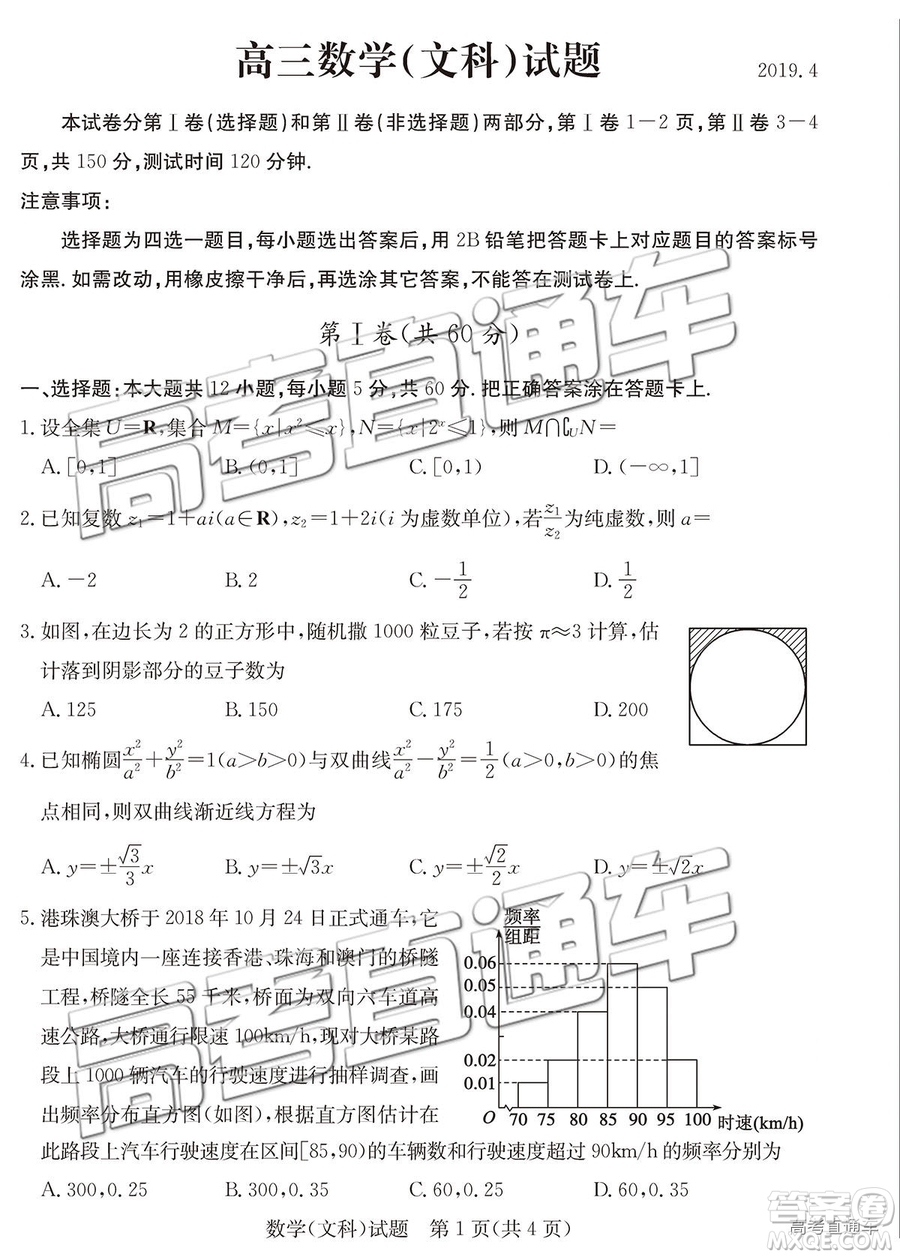 高三数学(文科)试题
2019.4
本试卷分第Ⅰ卷(选择题)和第Ⅱ卷(非选择题)两部分,第Ⅰ卷1-2页,第Ⅱ卷3-4
页,共150分,测试时间120分钟.
注意事项:
选择题为四选一题目,每小题选出答案后,用2B铅笔把答题卡上对应题目的答案标号
涂黑.如需改动,用橡皮擦干净后,再选涂其它答案,不能答在测试卷上.
第Ⅰ卷(共60分)
一、选择题:本大题共12小题,每小题5分,共60分.把正确答案涂在答题卡上.
1.设全集U=R,集合M={x|x²≤x},N={x|2ˣ≤1},则M∩∁UN=
A.[0,1] B.(0,1] C.[0,1) D.(-∞,1]
2.已知复数z₁=1+ai(a∈R),z₂=1+2i(i为虚数单位),若z₁/z₂为纯虚数,则a=
A.-2 B.2 C.-1/2 D.1/2
3.如图,在边长为2的正方形中,随机撒1000粒豆子,若按π≈3计算,估
计落到阴影部分的豆子数为
A.125 B.150 C.175 D.200
4.已知椭圆x²/a²+y²/b²=1(a>b>0)与双曲线x²/a²-y²/b²=1/2(a>0,b>0)的焦
点相同,则双曲线渐近线方程为
A.y=±√3/3x B.y=±√3x C.y=±√2/2x D.y=±√2x
5.港珠澳大桥于2018年10月24日正式通车,它
是中国境内一座连接香港、珠海和澳门的桥隧
工程,桥隧全长55千米,桥面为双向六车道高
速公路,大桥通行限速100km/h,现对大桥某路
段上1000辆汽车的行驶速度进行抽样调查,画
出频率分布直方图(如图),根据直方图估计在
此路段上汽车行驶速度在区间[85,90)的车辆数和行驶速度超过90km/h的频率分别为
频率
组距
0.06
0.05
0.04
0.02
0.01
O 70 75 80 85 90 95 100 时速(km/h)
A.300,0.25 B.300,0.35 C.60,0.25 D.60,0.35
数学(文科)试题 第1页(共4页)
高考直通车
高考直通车
高考直通车
答案圈
MXQE.COM